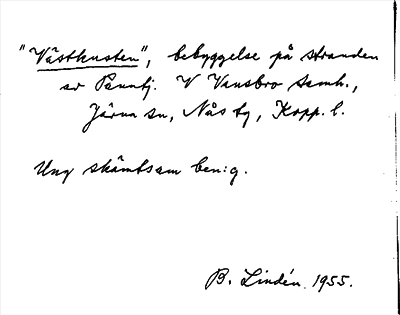 "Västkusten", bebyggelse på stranden
av Panntj. V Vansbro samh.,
Järna sn, Nås tg, Kopp. l.
Ung skämtsam ben:g.
B. Lindén. 1955.